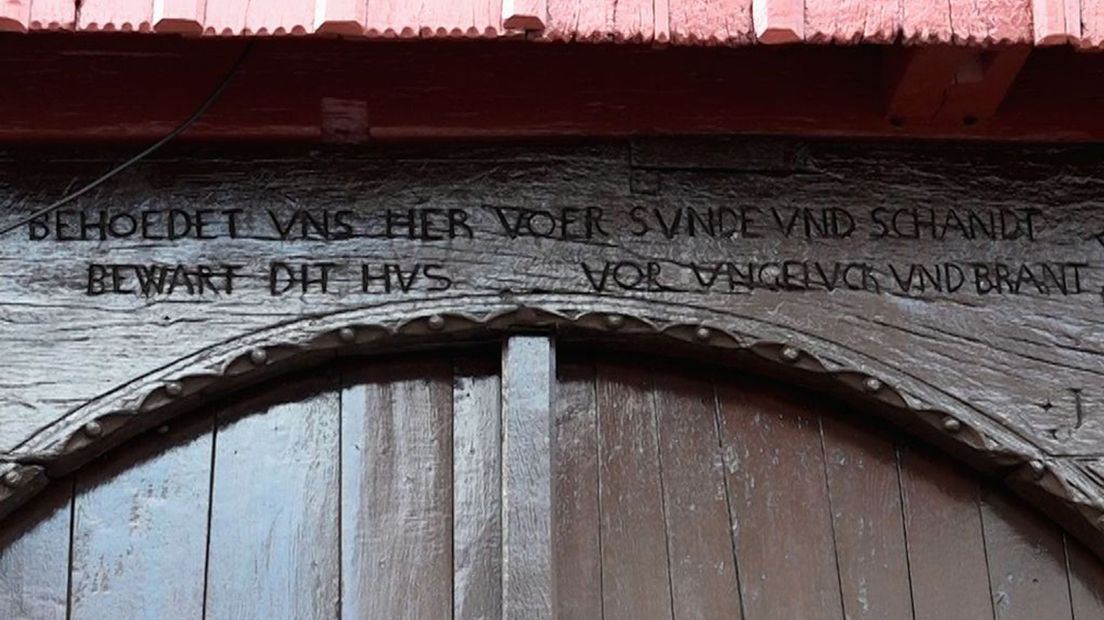 BEHOEDET VNS HER VOER SVNDE VND SCHANDT
BEWART DIT HVS VOR VNGELVCK VND BRANT
J